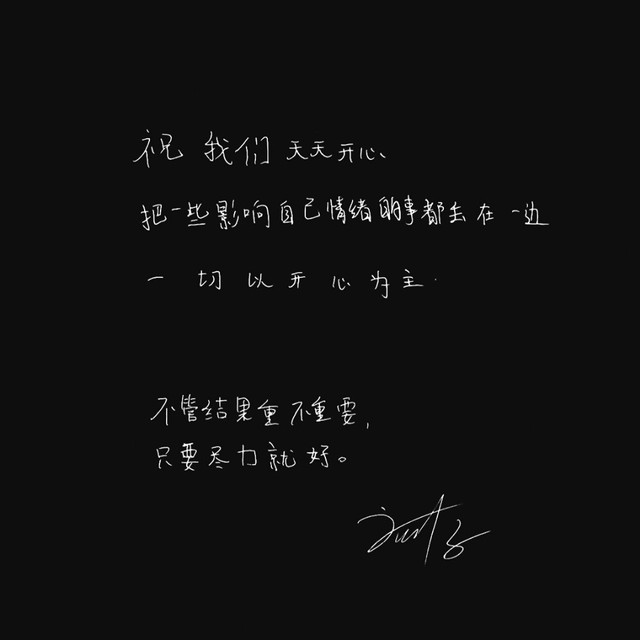 祝我们天天开心、
把一些影响自己情绪的事都丢在一边
一切以开心为主.
不管结果重不重要,
只要尽力就好。